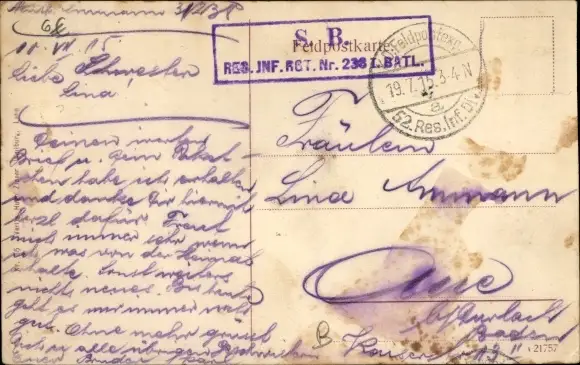 Ammann 3/238
11. VII. 15
Liebe Schwester
Lina
Deinen werten
Brief u. dein Paket-
chen habe ich erhalten
und danke Dir hiermit
herzl dafür. Freut
mich immer sehr wenn
ich was von der Heimat
erhalte. Sonst weiters
nichts neues. Bis heute
geht es mir immer noch
gut. Ohne mehr grüsst
Euer Bruder
S. B.
Feldpostkarte
RES. INF. RGT. Nr. 238 I. BATL.
Feldpostexp.
19.7.15. 3-4 N
a
52. Res. Inf. Div.
Fräulein
Lina Ammann
Aue
b/Durlach
Baden
Kaiserstr
21757